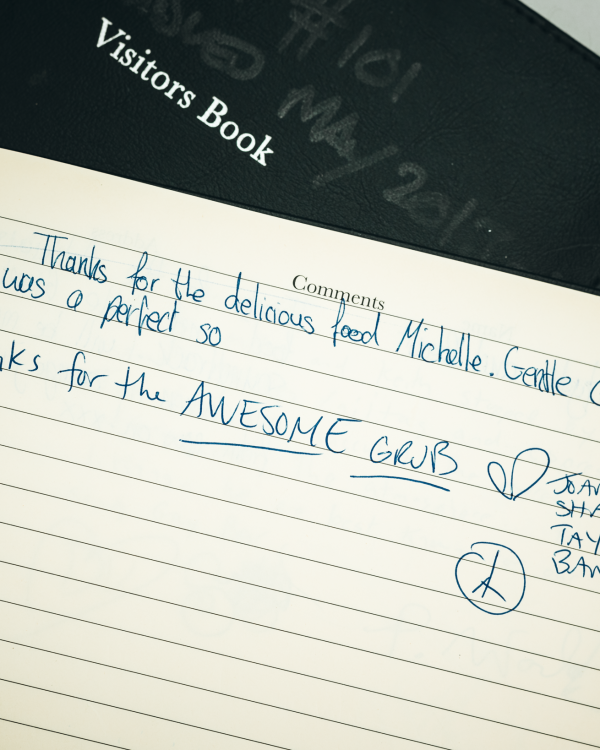 #101
MAY 201
Visitors Book
Comments
Thanks for the delicious food Michelle. Gentle
was a perfect so
ks for the AWESOME GRUB
JOA
SHA
TAY
BAN